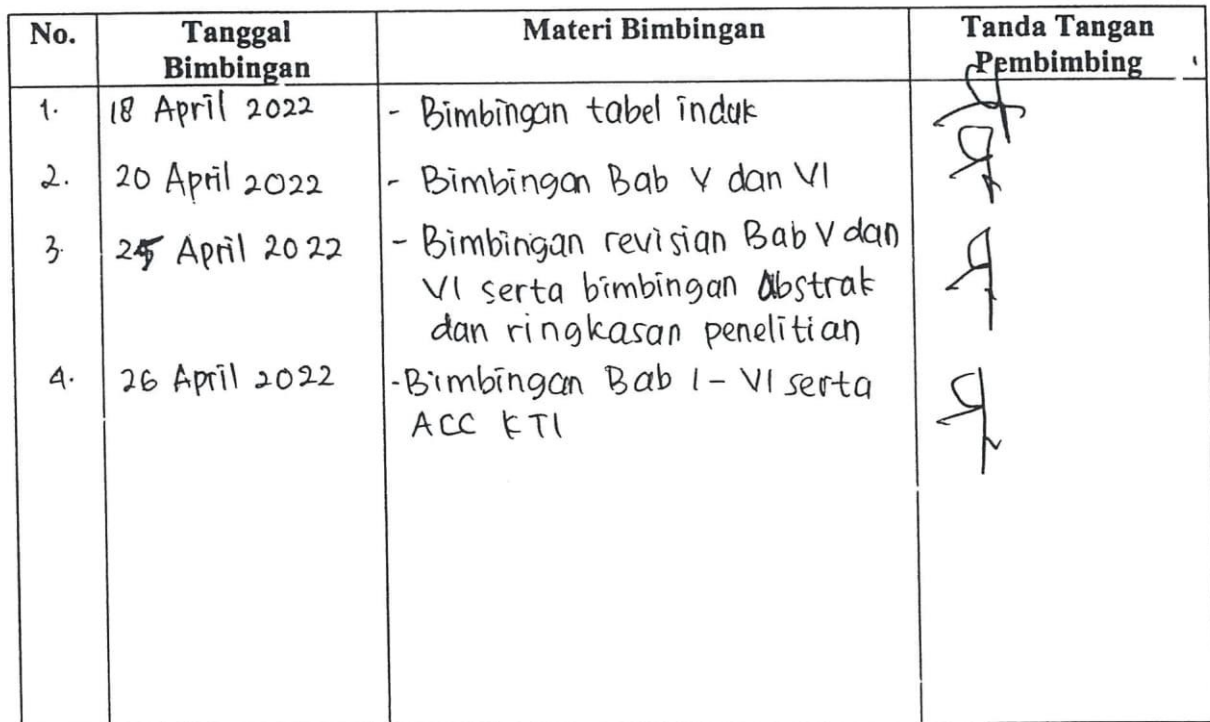 No. Tanggal Bimbingan Materi Bimbingan Tanda Tangan Pembimbing
1. 18 April 2022 - Bimbingan tabel induk
2. 20 April 2022 - Bimbingan Bab V dan VI
3. 25 April 2022 - Bimbingan revisian Bab V dan
VI serta bimbingan Abstrak
dan ringkasan penelitian
4. 26 April 2022 - Bimbingan Bab I - VI serta
ACC KTI